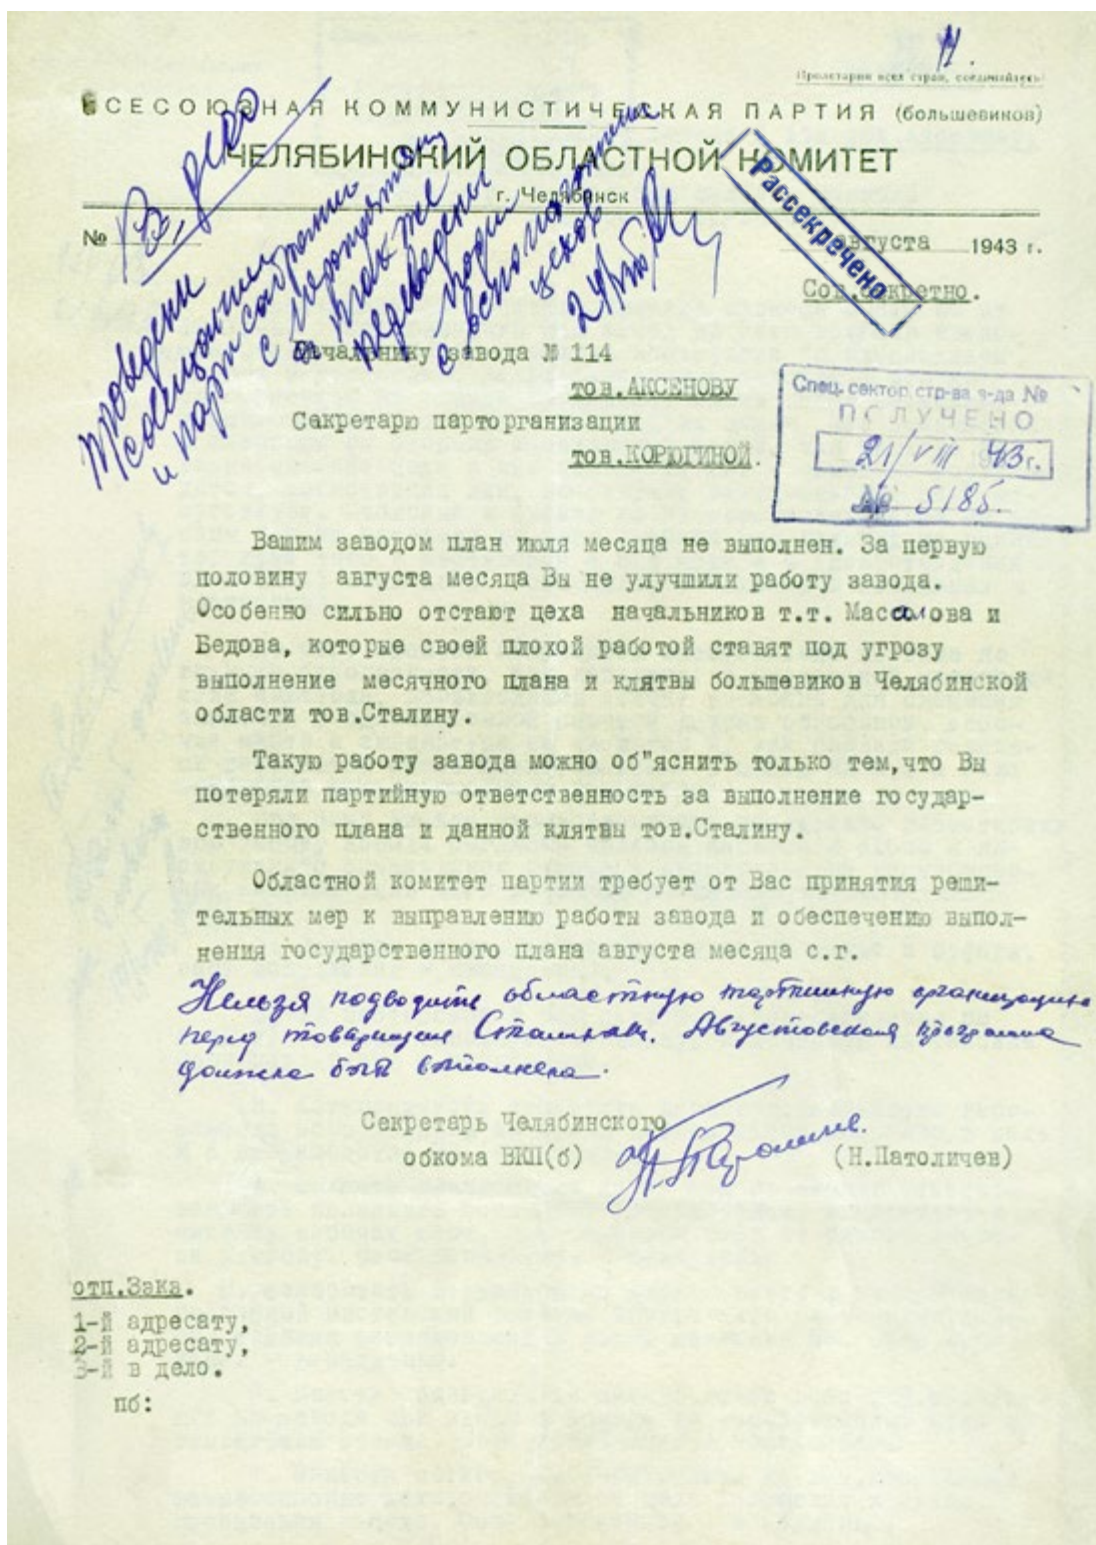 Пролетарии всех стран, соединяйтесь!
ВСЕСОЮЗНАЯ КОММУНИСТИЧЕСКАЯ ПАРТИЯ (большевиков)
ЧЕЛЯБИНСКИЙ ОБЛАСТНОЙ КОМИТЕТ
г. Челябинск
№
августа 1943 г.
Рассекречено
Сов.секретно.
проведены
и партсобрания
с
а также
проведены
с вспомогательных
цехов
Начальнику завода № 114
тов.АКСЕНОВУ
Секретарю парторганизации
тов.КОРЮГИНОЙ.
Спец. сектор стр-ва з-да №
ПОЛУЧЕНО
21/VIII 1943г.
№ 5185.
Вашим заводом план июля месяца не выполнен. За первую
половину августа месяца Вы не улучшили работу завода.
Особенно сильно отстают цеха начальников т.т. Массалова и
Бедова, которые своей плохой работой ставят под угрозу
выполнение месячного плана и клятвы большевиков Челябинской
области тов.Сталину.
Такую работу завода можно об"яснить только тем,что Вы
потеряли партийную ответственность за выполнение государ-
ственного плана и данной клятвы тов.Сталину.
Областной комитет партии требует от Вас принятия реши-
тельных мер к выправлению работы завода и обеспечению выпол-
нения государственного плана августа месяца с.г.
Нельзя подводить областную партийную организацию
перед товарищем Сталиным. Августовская программа
должна быть выполнена.
Секретарь Челябинского
обкома ВКП(б) (Н.Патоличев)
отп.3экз.
1-й адресату,
2-й адресату,
3-й в дело.
пб: